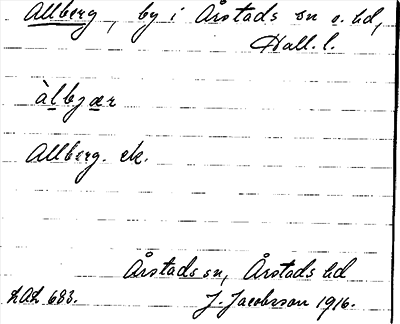 Allberg, by i Årstads sn o. hd,
Hall. l.
àlbjær
Allberg. ek.
Årstads sn, Årstads hd
LAL 683. J. Jacobsson 1916.